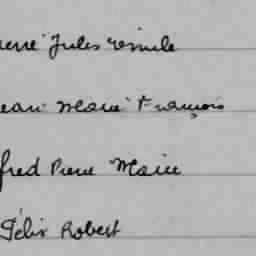 Jules Emile
Marie François
fred Pierre Marie
Félix Robert